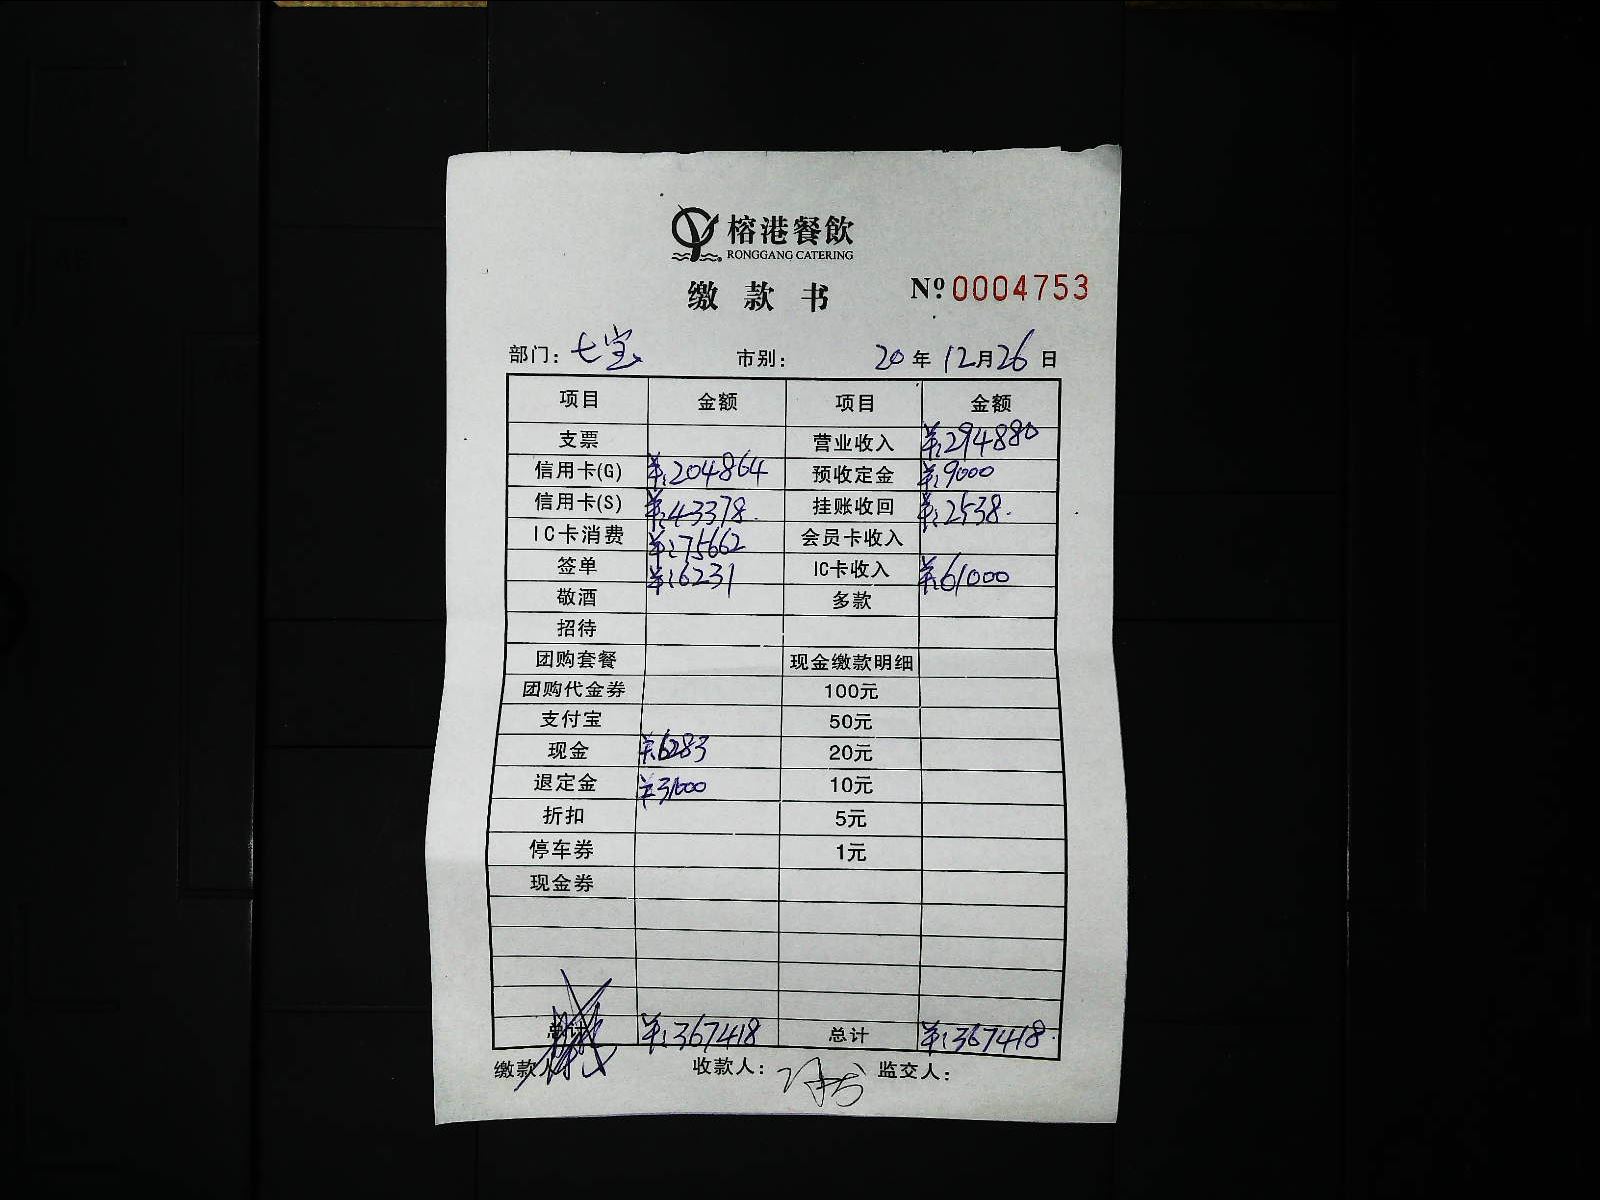 榕港餐飲
RONGGANG CATERING
缴款书 Nº 0004753
部门：七宝 市别： 20年12月26日
项目 金额 项目 金额
支票 营业收入 ¥:294880
信用卡(G) ¥:204864 预收定金 ¥:9000
信用卡(S) ¥:43378. 挂账收回 ¥:2538.
IC卡消费 ¥:75662 会员卡收入
签单 ¥:6231 IC卡收入 ¥:61000
敬酒 多款
招待
团购套餐 现金缴款明细
团购代金券 100元
支付宝 50元
现金 ¥:6283 20元
退定金 ¥31000 10元
折扣 5元
停车券 1元
现金券
总计 ¥:367418 总计 ¥:367418.
缴款人 收款人： 监交人：